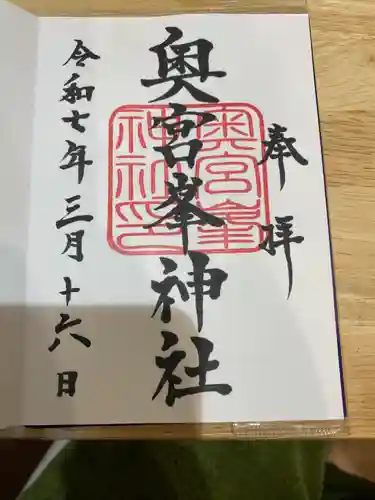 奉拝
奥宮峯神社
奥宮峯
神社印
令和七年三月十六日